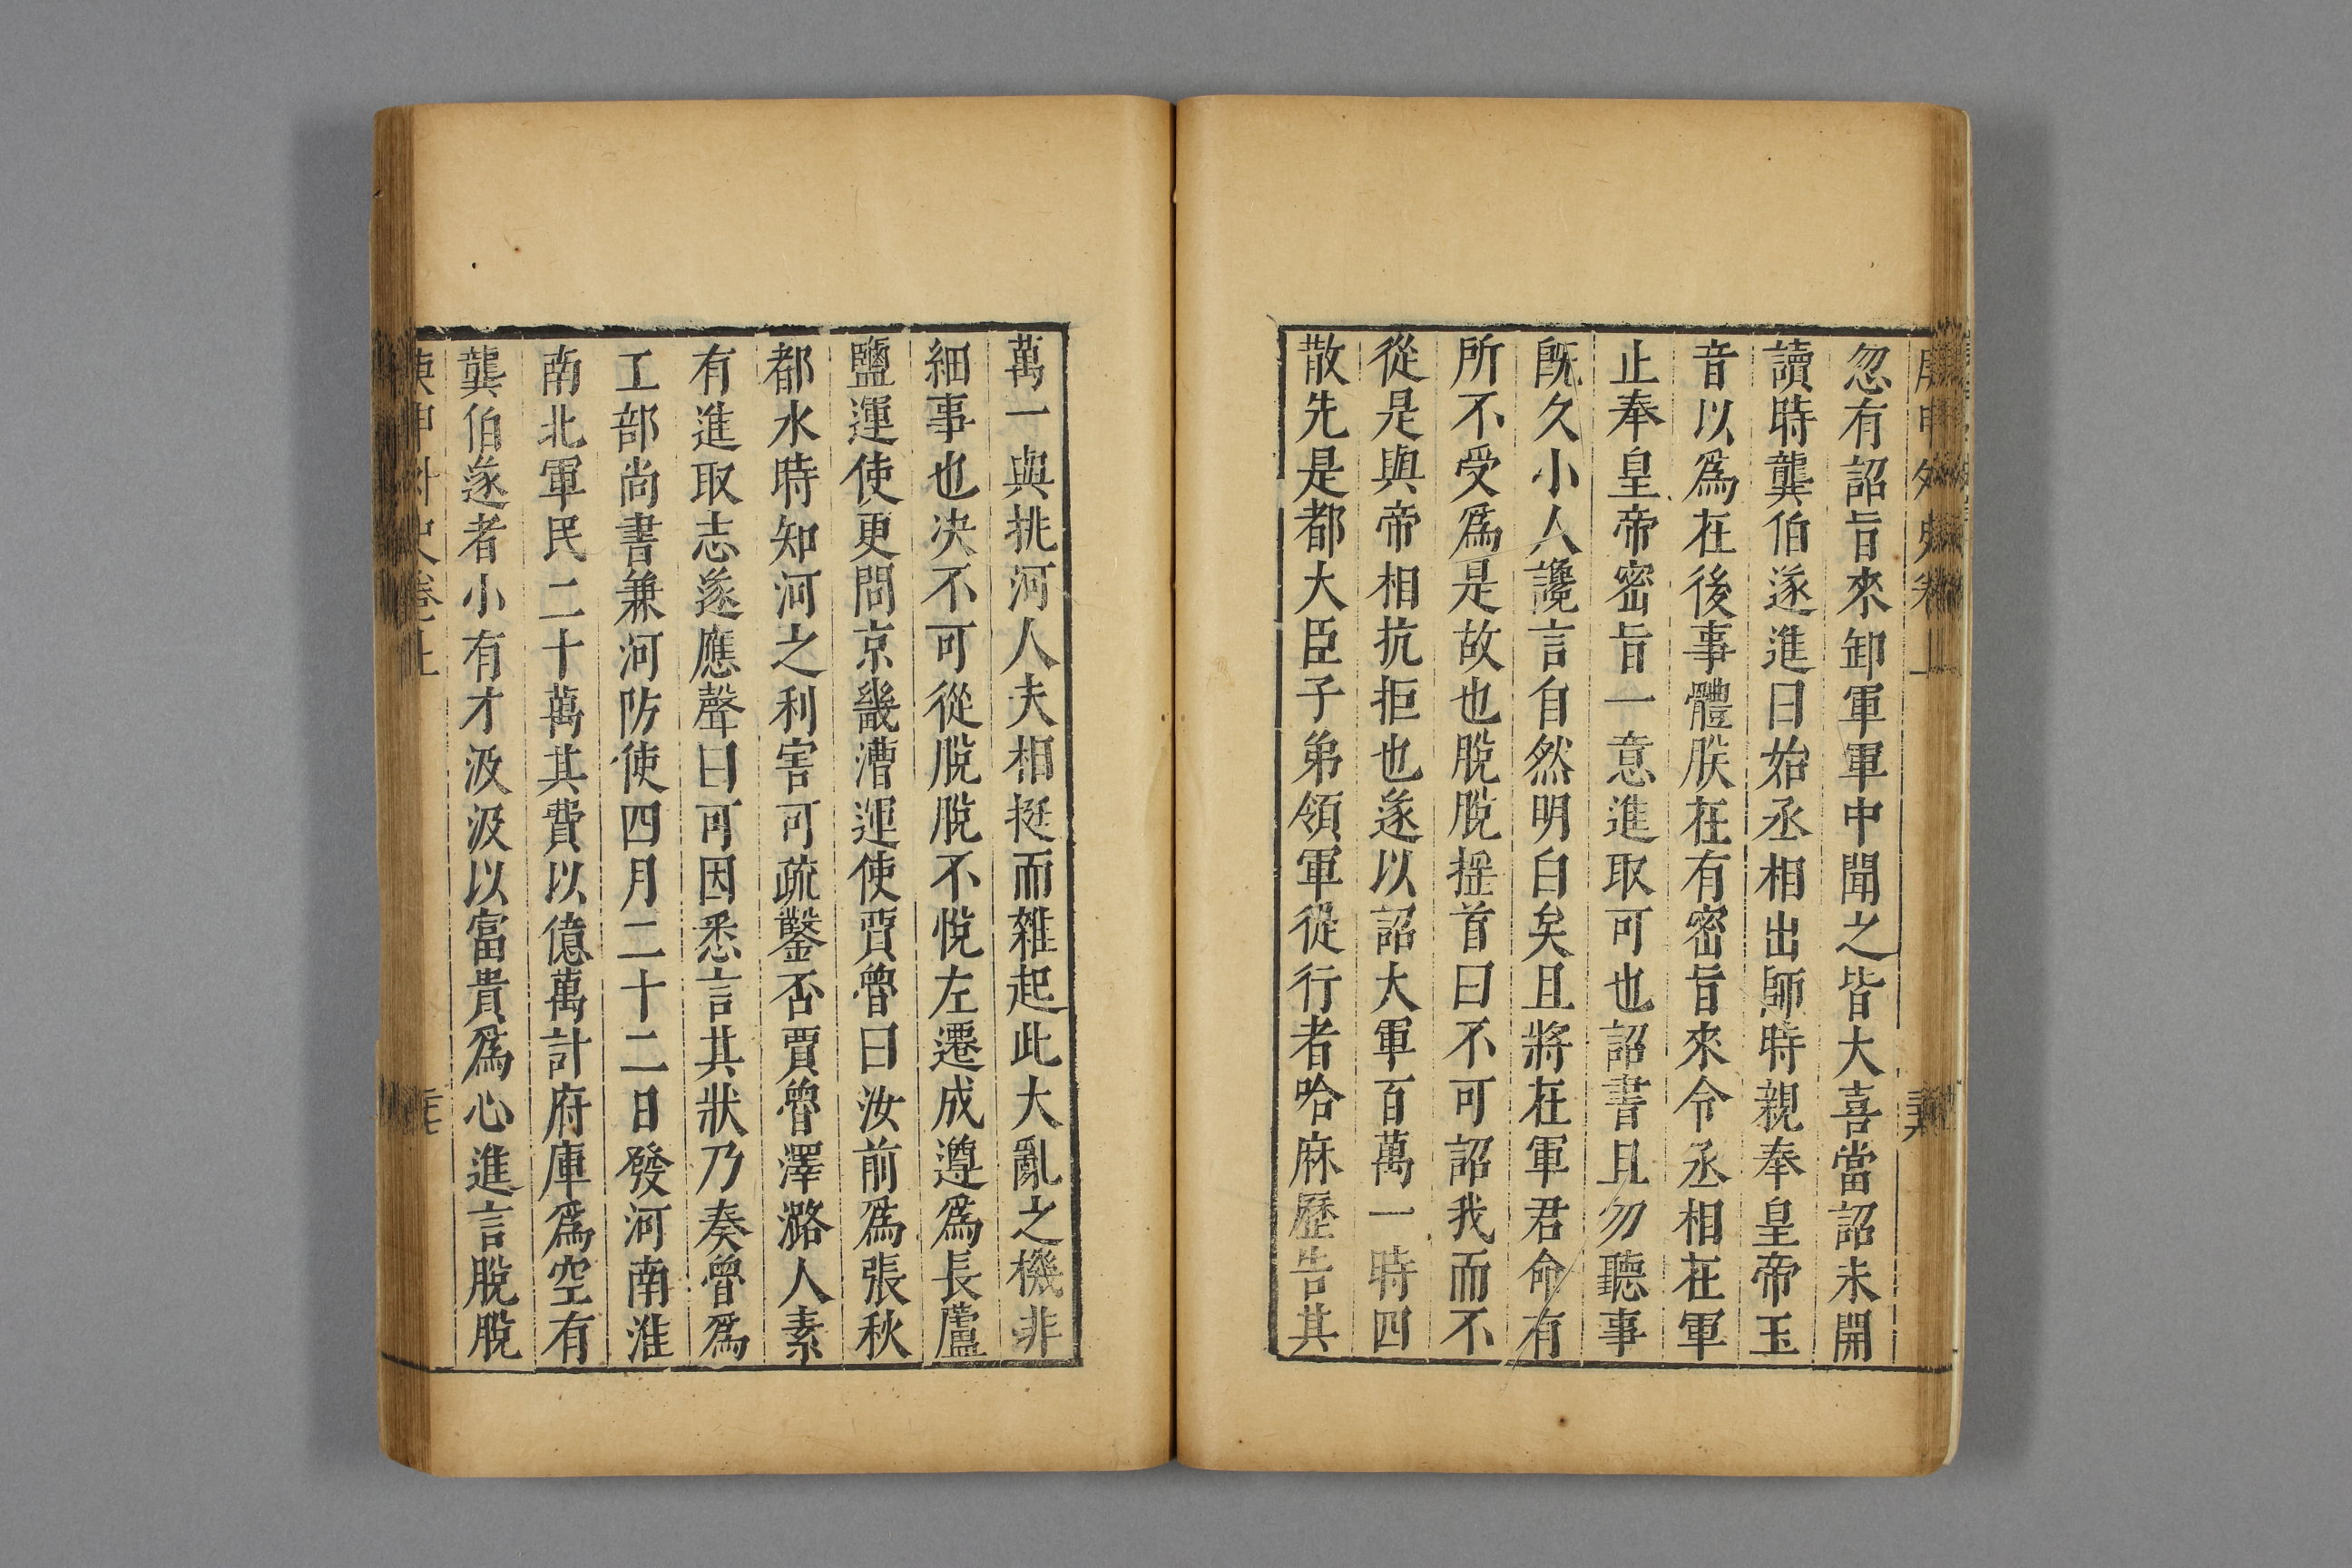 庚申外史卷上
忽有詔旨來卸軍軍中聞之皆大喜當詔未開
讀時龔伯遂進曰始丞相出師時親奉皇帝玉
音以爲在後事體朕在有密旨來令丞相在軍
止奉皇帝密旨一意進取可也詔書且勿聽事
旣久小人讒言自然明白矣且將在軍君命有
所不受爲是故也脫脫揺首曰不可詔我而不
從是與帝相抗拒也遂以詔大軍百萬一時四
散先是都大臣子弟領軍從行者哈麻歷告其
萬一與挑河人夫相挺而雜起此大亂之機非
細事也决不可從脫脫不悅左遷成遵爲長蘆
鹽運使更問京畿漕運使賈魯曰汝前爲張秋
都水時知河之利害可疏鑿否賈魯澤潞人素
有進取志遂應聲曰可因悉言其狀乃奏魯爲
工部尚書兼河防使四月二十二日發河南淮
南北軍民二十萬其費以億萬計府庫爲空有
龔伯遂者小有才汲汲以富貴爲心進言脫脫
庚申外史卷上